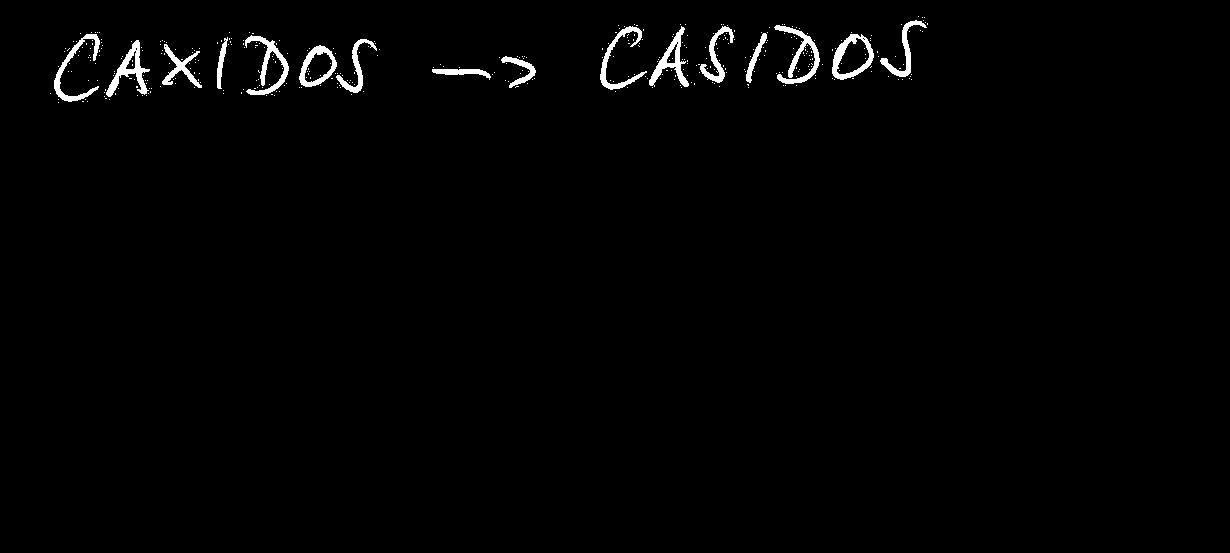 CAXIDOS —> CASIDOS